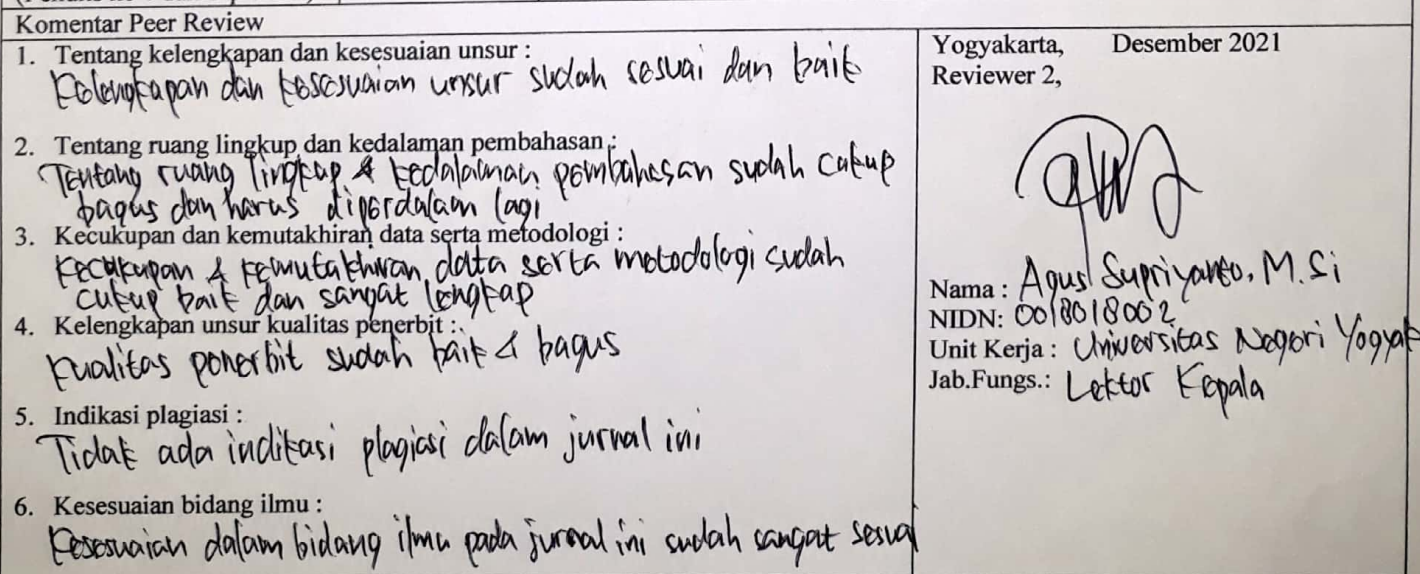 Komentar Peer Review
1. Tentang kelengkapan dan kesesuaian unsur :
Kelengkapan dan kesesuaian unsur sudah sesuai dan baik
2. Tentang ruang lingkup dan kedalaman pembahasan :
Tentang ruang lingkup & kedalaman pembahasan sudah cukup
bagus dan harus diperdalam lagi
3. Kecukupan dan kemutakhiran data serta metodologi :
Kecukupan & kemutakhiran data serta metodologi sudah
cukup baik dan sangat lengkap
4. Kelengkapan unsur kualitas penerbit :
Kualitas penerbit sudah baik & bagus
5. Indikasi plagiasi :
Tidak ada indikasi plagiasi dalam jurnal ini
6. Kesesuaian bidang ilmu :
Kesesuaian dalam bidang ilmu pada jurnal ini sudah sangat sesuai
Yogyakarta, Desember 2021
Reviewer 2,
Nama : Agus Supriyanto, M.Si
NIDN: 0018018002
Unit Kerja : Universitas Negeri Yogyak
Jab.Fungs.: Lektor Kepala